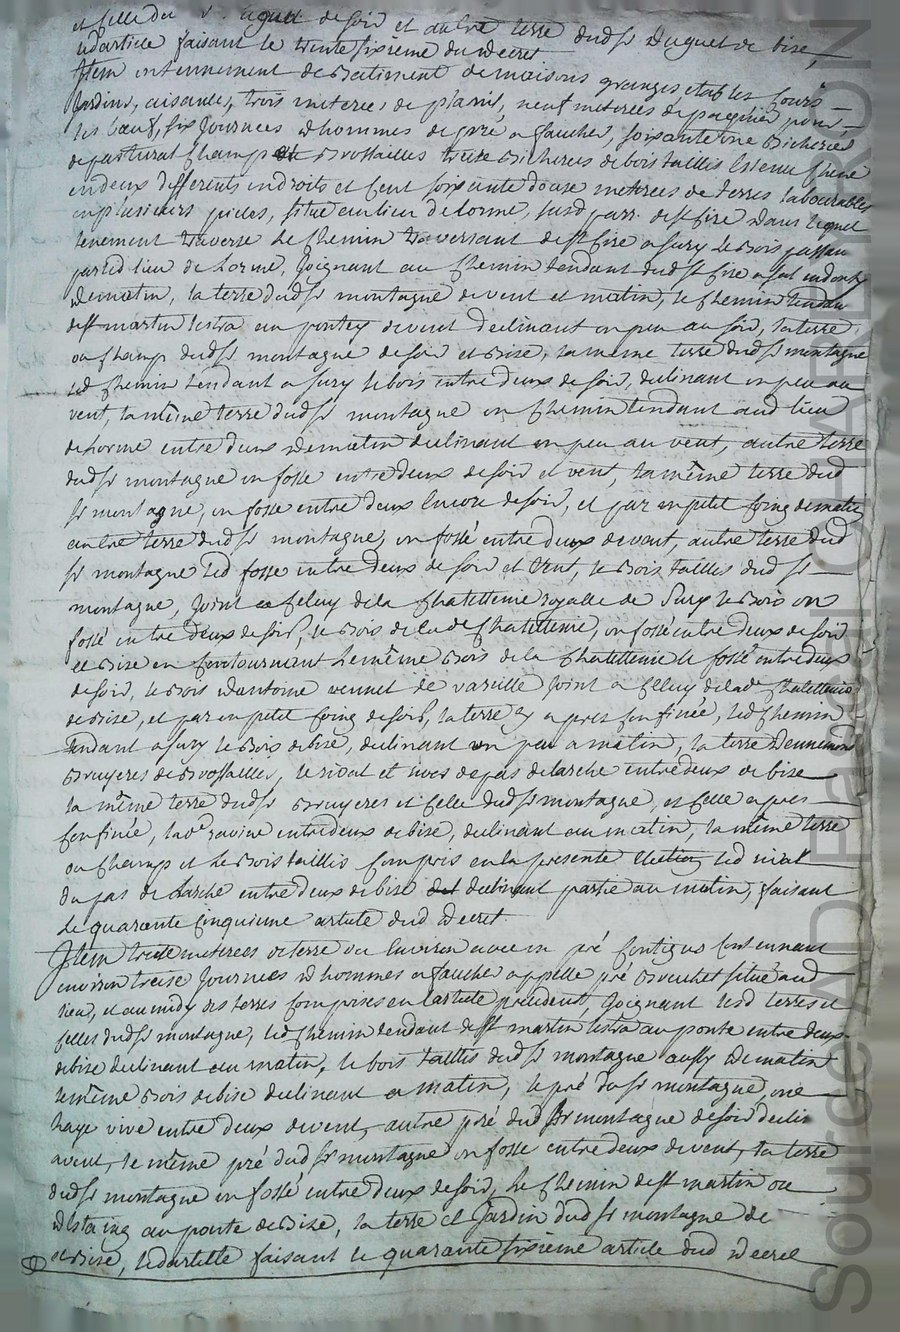 et celle du Sr. duguet de soir et autre terre dudsr. duguet de bise,
ledarticle faisant le trente sixieme du decret
Item un tennement de batiment de maisons granges etables cours
Jardins, aisances, trois meterées de plamis, neuf meterées de paquier pour
les bœufs, six Journées d'hommes de pré a faucher, soixante une bicherées
de pastural champ et brossailles treize bicherées de bois taillis Essence chene
en deux differents endroits et cent soixante douze meterées de terres labourables
en plusieurs pieces, situé en lieu de lorme, susd. parr. de st cire dans lequel
tenement traverse le chemin traversant de st cire a Sury le bois passan
par led. lieu de Lorme, Joignant au chemin tendant dud. st cire a
de matin, la terre dudsr montagne de vent et matin, le chemin tendan
de st martin lestra au pontey de vent declinant un peu au soir, la terre
ou champ dudsr montagne de soir et bise, la même terre dudsr montagne
led chemin tendant a Sury le bois entre deux de soir, declinant un peu au
vent, la même terre dudsr montagne un chemin tendant aud lieu
de Lorme entre deux de matin declinant un peu au vent, autre terre
dudsr montagne un fossé entre deux de soir et vent, la même terre dud
sr montagne, un fossé entre deux Encore de soir, et par un petit coing de matin
autre terre dudsr montagne, un fossé entre deux de vent, autre terre dud
sr montagne led fossé entre deux de soir et vent, le bois taillis dud sr
montagne, Joint a celuy de la chatellenie royalle de Sury le bois un
fossé entre deux de soir, le bois de lade chatellenie, un fossé entre deux de soir
et bise en contournant le même bois de la chatellenie le fossé entre deux
de soir, le bois d'antoine vennet de vareille Joint a celuy de lade chatellenie
de bise, et par un petit coing de soir, la terre cy apres confinée, led chemin
tendant a Sury le bois de bise, declinant un peu a matin, la terre d'ennemond
bruyeres de brossailles, le rioat et rives de pas de larche entre deux de bise
la même terre dudsr bruyeres et celle dudsr montagne, et celle apres
confinée, lade ravine entre deux de bise, declinant au matin, la même terre
ou champ et le bois taillis compris en la presente Election led rioat
du pas de Larche entre deux de bise declinant partie au matin, faisant
le quarante cinquieme article dud decret.
Item trente meterées de terre ou Environ avec un pré contigus contennant
environ treize Journées d'hommes a faucher appellé pré bruchet situé aud
lieu, et au midy des terres comprises en l'article precedent, Joignant lesd. terres et
celles dudsr montagne, led chemin tendant de st martin lestra au ponte entre deux
de bise declinant au matin, le bois taillis dudsr montagne aussy de matin
le même bois de bise declinant a matin, le pré dusr montagne, une
haye vive entre deux de vent, autre pré dud sr montagne de soir declin
a vent, le même pré dudsr montagne un fossé entre deux de vent, la terre
dudsr montagne un fossé entre deux de soir, le chemin de st martin ou
d'Estaing au ponte de bise, la terre et Jardin dudsr montagne de
et bise, ledarticle faisant le quarante sixieme article dud decret
Source AD Pascal CHARBURON